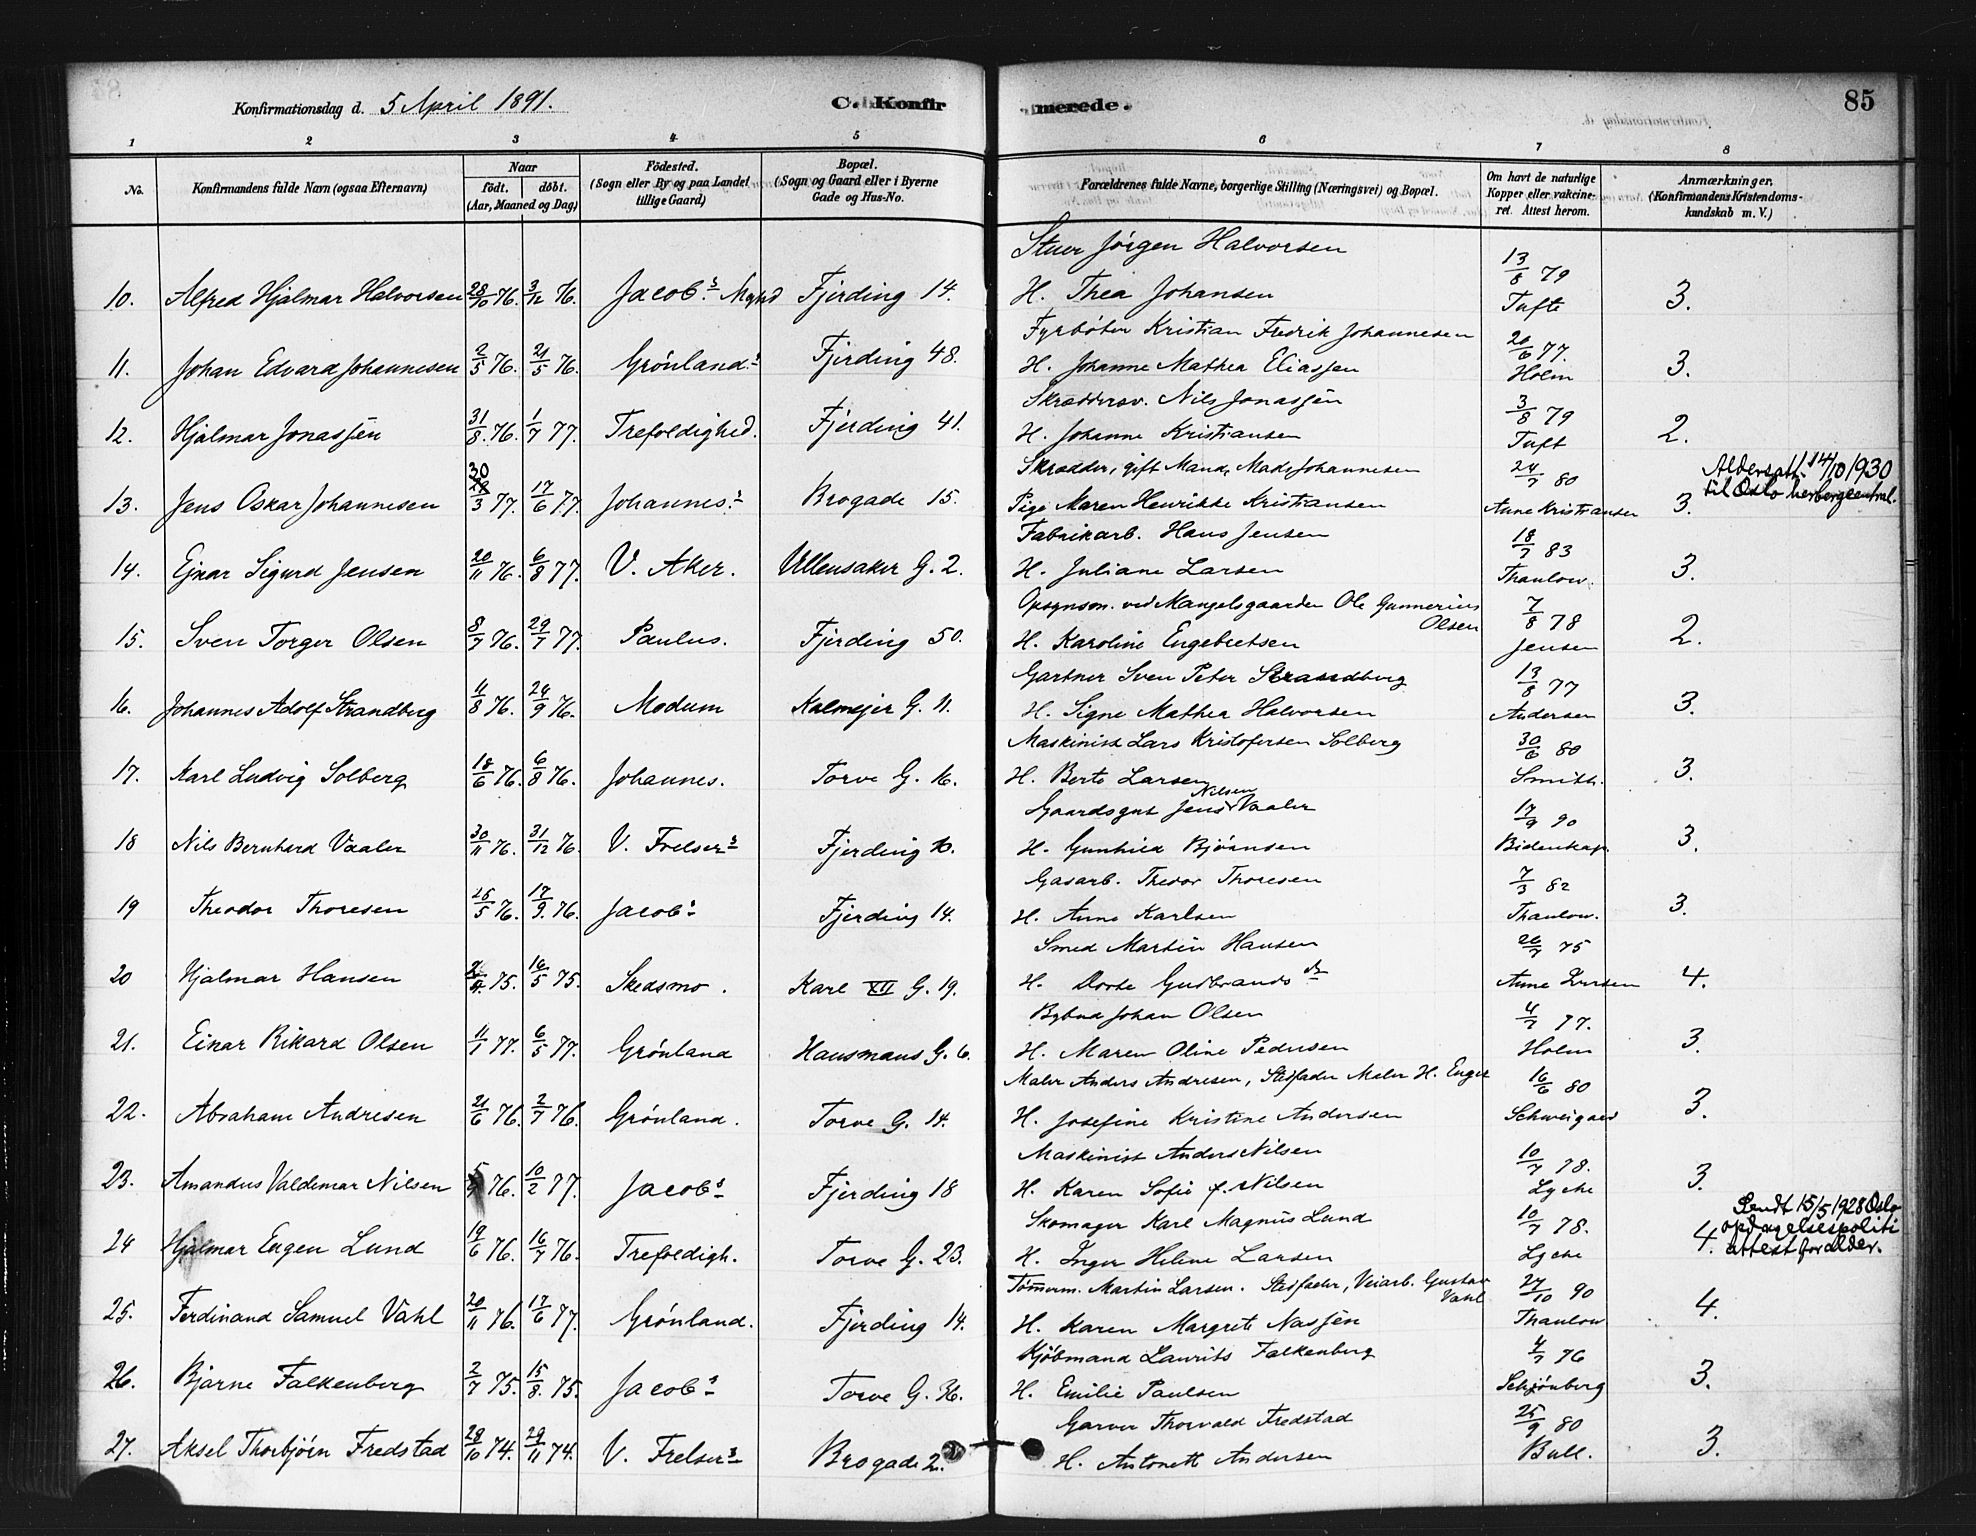 Konfirmationsdag d. 5 April 1891. C. Konfirmerede. 85
1 2 3 4 5 6 7 8
No. Konfirmandens fulde Navn (ogsaa Efternavn) Naar Födested. Bopæl. Forældrenes fulde Navne, borgerlige Stilling (Næringsvei) og Bopæl. Om havt de naturlige Anmærkninger.
födt. döbt. (Sogn eller By og paa Landet (Sogn og Gaard eller i Byerne Kopper eller vakcine- (Konfirmandens Kristendoms-
(Aar, Maaned og Dag) tillige Gaard) Gade og Hus-No. ret. Attest herom. kundskab m. V.)
Stuer Jørgen Halvorsen 13/8 79
10. Alfred Hjalmar Halvorsen 28/10 76. 3/12 76. Jacobs Fjerding 14. H. Thea Johansen Tufte 3.
Fyrbøter Kristian Fredrik Johannesen 20/6 77.
11. Johan Edvard Johannesen 2/3 76. 21/5 76. Grønlands Fjerding 48. H. Johanne Mathea Eliassen Holm 3.
Skræddersv. Nils Jonassen 3/8 79
12. Hjalmar Jonassen 31/8 76. 1/7 77. Trefoldighed. Fjerding 41. H. Johanne Kristiansen Tuft 2.
30 Skrædder, gift Mand, Mads Johannesen 24/7 80 Aldersatt. 14/10 1930
13. Jens Oskar Johannesen /3 77. 17/6 77. Johannes. Brogade 15. Pige Maren Henrikke Kristiansen Anne Kristiansen 3. til Oslo herbergcentral.
Fabrikarb. Hans Jensen 18/7 83
14. Ejnar Sigurd Jensen 20/11 76. 6/8 77. V. Aker. Ullensaker G. 2. H. Juliane Larsen Thaulow. 3.
Opsynsm. ved Mangelsgaarden Ole Gunnerius 7/8 78
Olsen
15. Sven Torger Olsen 8/7 76. 29/7 77. Paulus. Fjerding 50. H. Karoline Engebretsen Jensen 2.
Gartner Sven Peter Strandberg 13/8 77
16. Johannes Adolf Strandberg 11/8 76. 24/9 76. Modum Kalmejer G. 11. H. Signe Mathea Halvorsen Andersen 3.
Maskinist Lars Kristofersen Solberg 30/6 80
17. Karl Ludvig Solberg 18/6 76. 6/8 76. Johannes. Torve G. 16. H. Berte Larsen Smith. 3.
Nilsen
Gaardsgut Jens Vaaler 17/9 90
18 Nils Bernhard Vaaler 30/11 76. 31/12 76. V. Frelsers Fjerding 10. H. Gunhild Bjørnsen Bidenkap. 3.
Gasarb. Thedor Thoresen 7/3 82
19 Theodor Thoresen 25/5 76. 17/9 76. Jacobs Fjerding 14. H. Anne Karlsen Thaulow. 3.
Smed Martin Hansen 26/7 75
20 Hjalmar Hansen 75. 16/5 75. Skedsmo. Karl XII G. 19. H. Dorte Gudbrandsdr Anne Larsen 4.
Bybud Johan Olsen 4/7 77.
21. Einar Rikard Olsen 11/1 77. 6/5 77. Grønland Hausmans G. 6. H. Maren Oline Pedersen Holm 3.
Maler Anders Andresen, Stedfader Maler H. Enger 16/6 80
22. Abraham Andresen 21/6 76. 2/7 76. Grønland. Torve G. 14. H. Josefine Kristine Andersen Schweigaard 3.
Maskinist Anders Nilsen 10/7 78.
23. Amandus Valdemar Nilsen 5/9 76. 10/2 77. Jacobs Fjerding 18 H. Karen Sofie f. Nilsen Lyche 3.
Skomager Karl Magnus Lund 10/7 78. Sendt 15/5 1928 Oslo
24 Hjalmar Eugen Lund 19/6 76. 16/7 76. Trefoldigh. Torve G. 23. H. Inger Helene Larsen Lyche 4. opdagelsespoliti
attest for alder.
Tømmerm. Martin Larsen. Stedfader, Veiarb. Gustav 27/10 90
Vahl
25. Ferdinand Samuel Vahl 20/11 76. 17/6 77. Grønland. Fjerding 14. H. Karen Margrete Nassen Thaulow 4.
Kjøbmand Laurits Falkenberg 4/7 76
26. Bjarne Falkenberg 2/7 75. 15/8 75. Jacobs Torve G. 36. H. Emilie Paulsen Schjønberg 3.
Garver Thorvald Fredstad 25/9 80
27. Aksel Thorbjørn Fredstad 28/10 74. 29/11 74. V. Frelsers Brogade 2. H. Antonett Andersen Bull. 3.